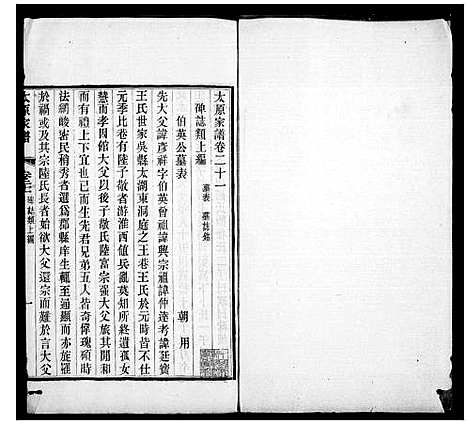 太原家譜卷二十一
碑誌類上編 墓表 墓誌銘
伯英公墓表
朝用
先大父諱彥祥字伯英曾祖諱興宗祖諱仲達考諱廷寶
王氏世家吳縣太湖東洞庭之王巷王氏於元時皆不仕
元季比巷有陸子敬者游淮西值兵亂莫知所終遺孤女
慧而孝四傳於敬氏時陸富宗強大父旅其間和
而有禮上下宜也已而生先君兄弟五人皆奇偉瑰碩時
法網峻密民稍秀者選爲郡縣庠生輒至通顯而亦旋罹
於禍或及其宗陸氏長者始欲大父還宗而難於言大父
太原家譜
卷二十一 碑誌類上編
一